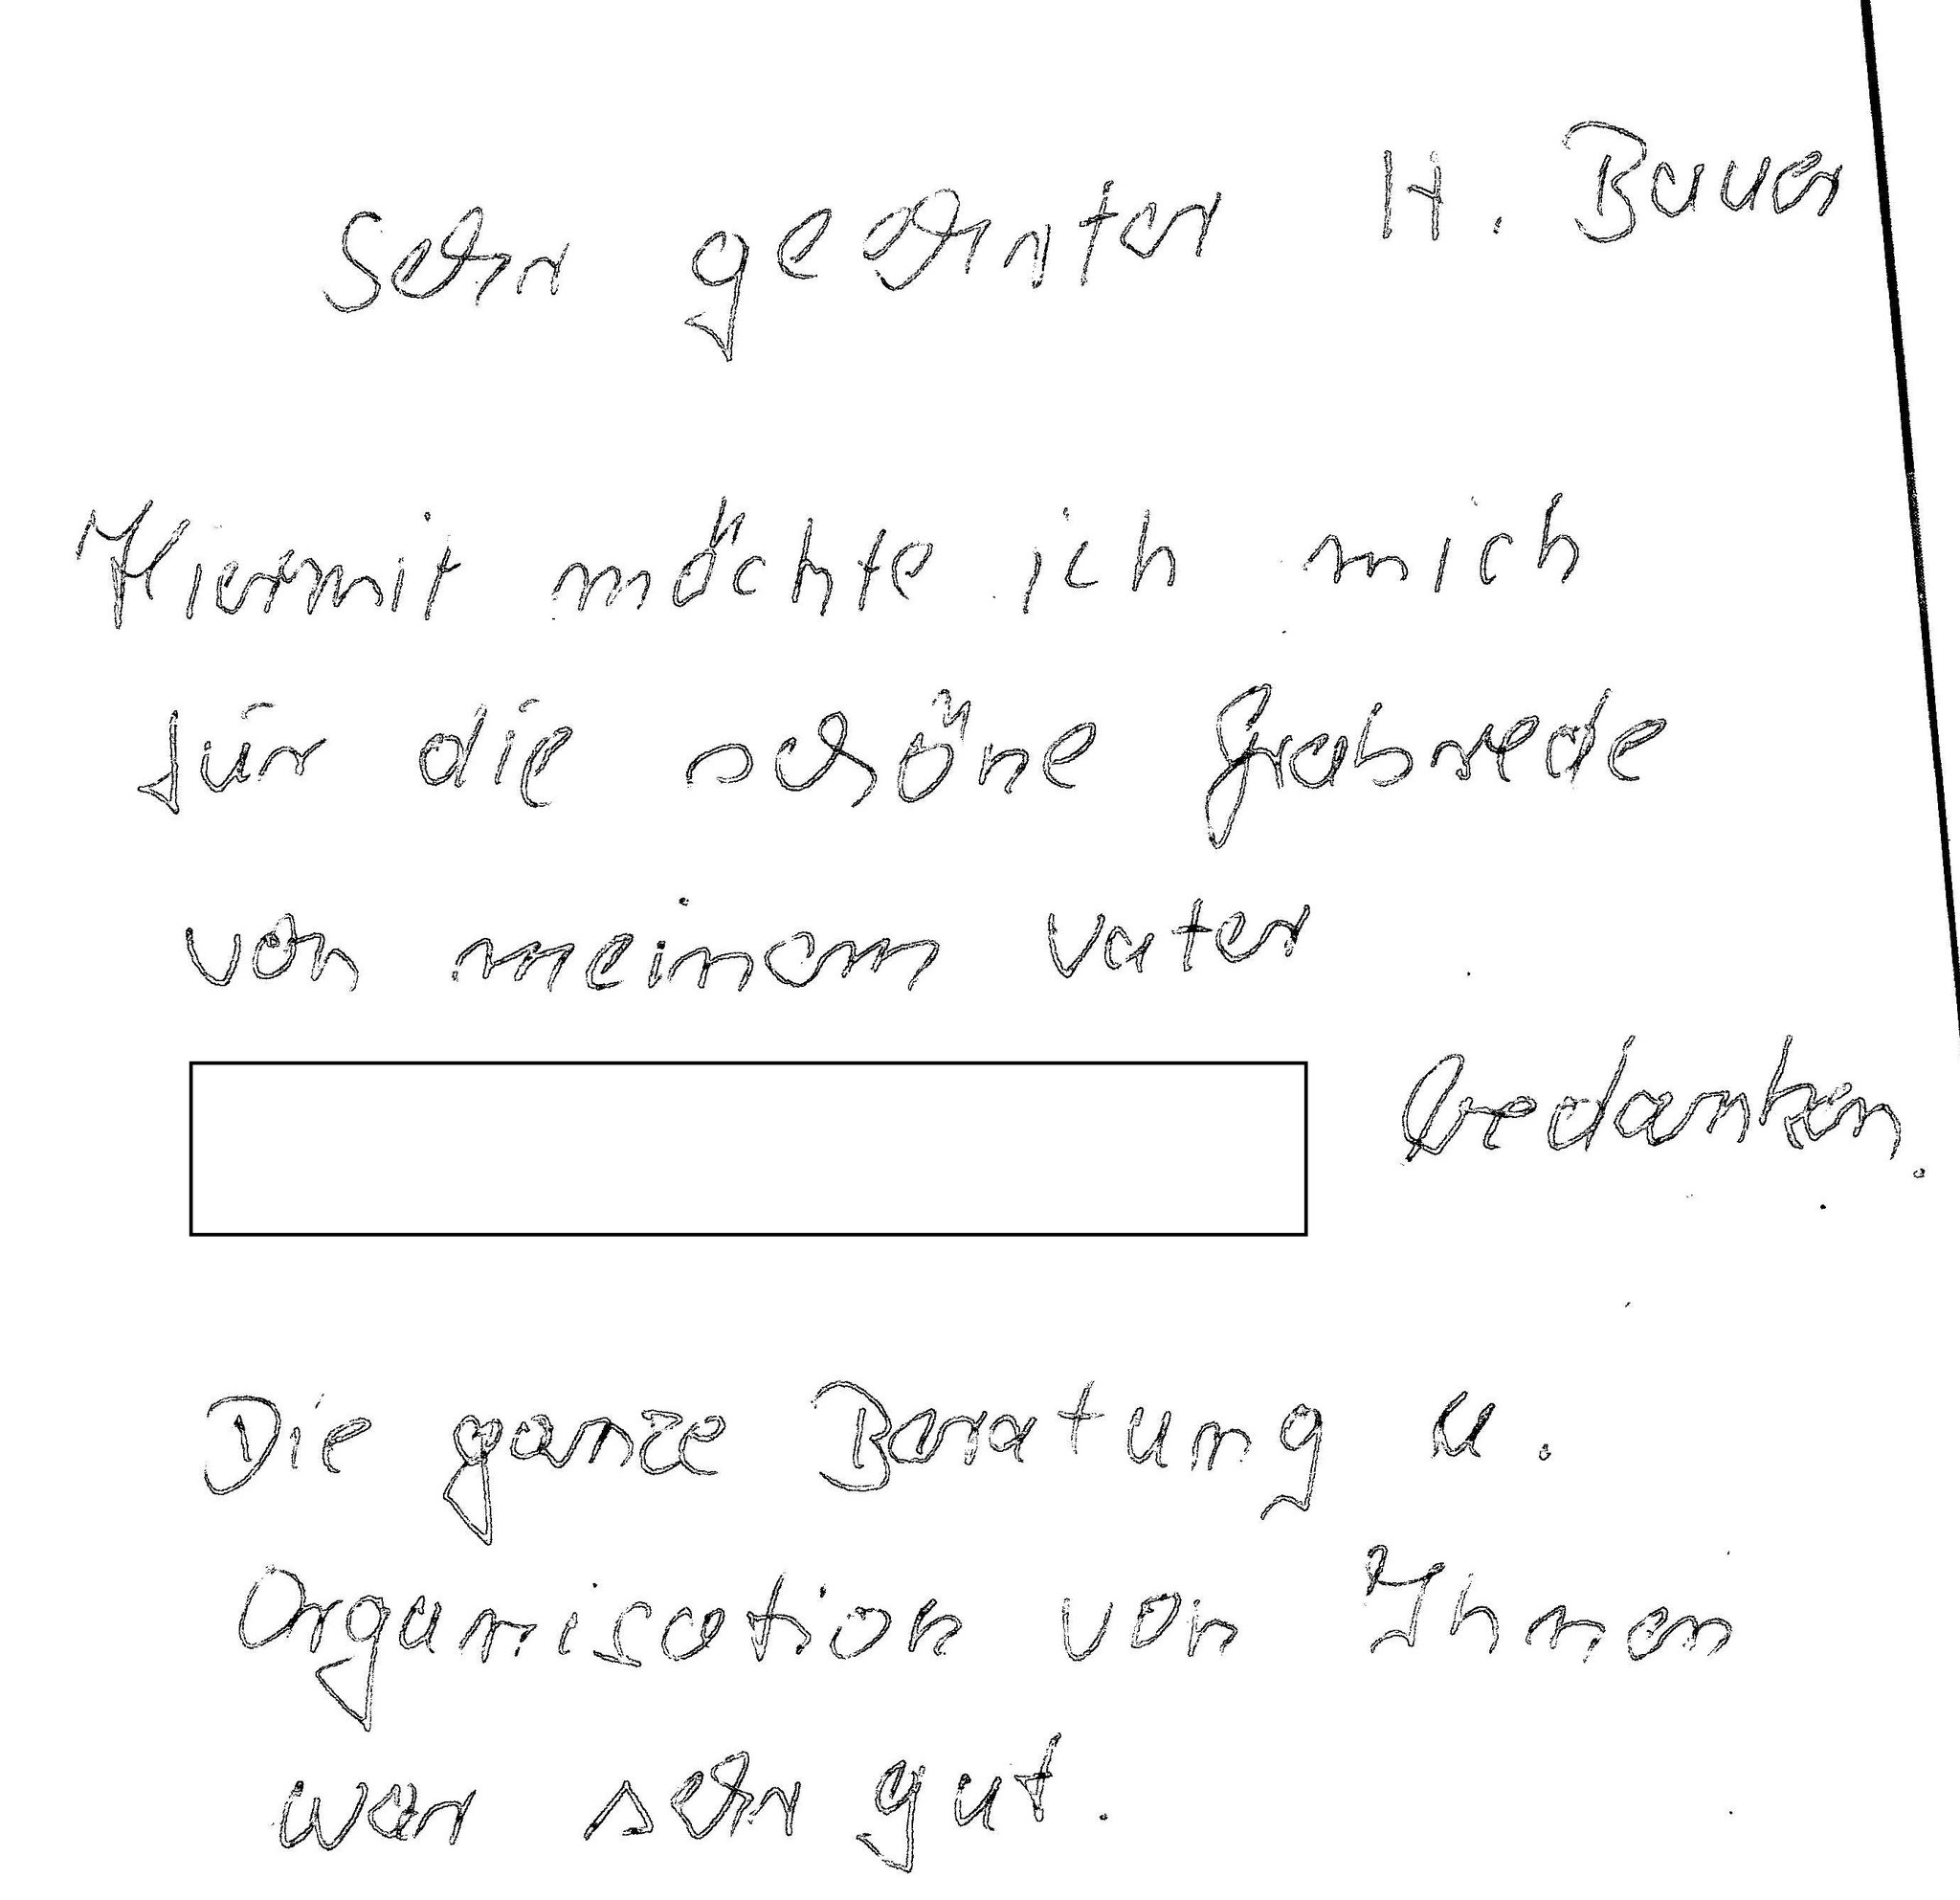 Sehr geehrter H. Bauer
Hiermit möchte ich mich
für die schöne Grabrede
von meinem Vater
bedanken.
Die ganze Beratung u.
Organisation von Ihnen
war sehr gut.